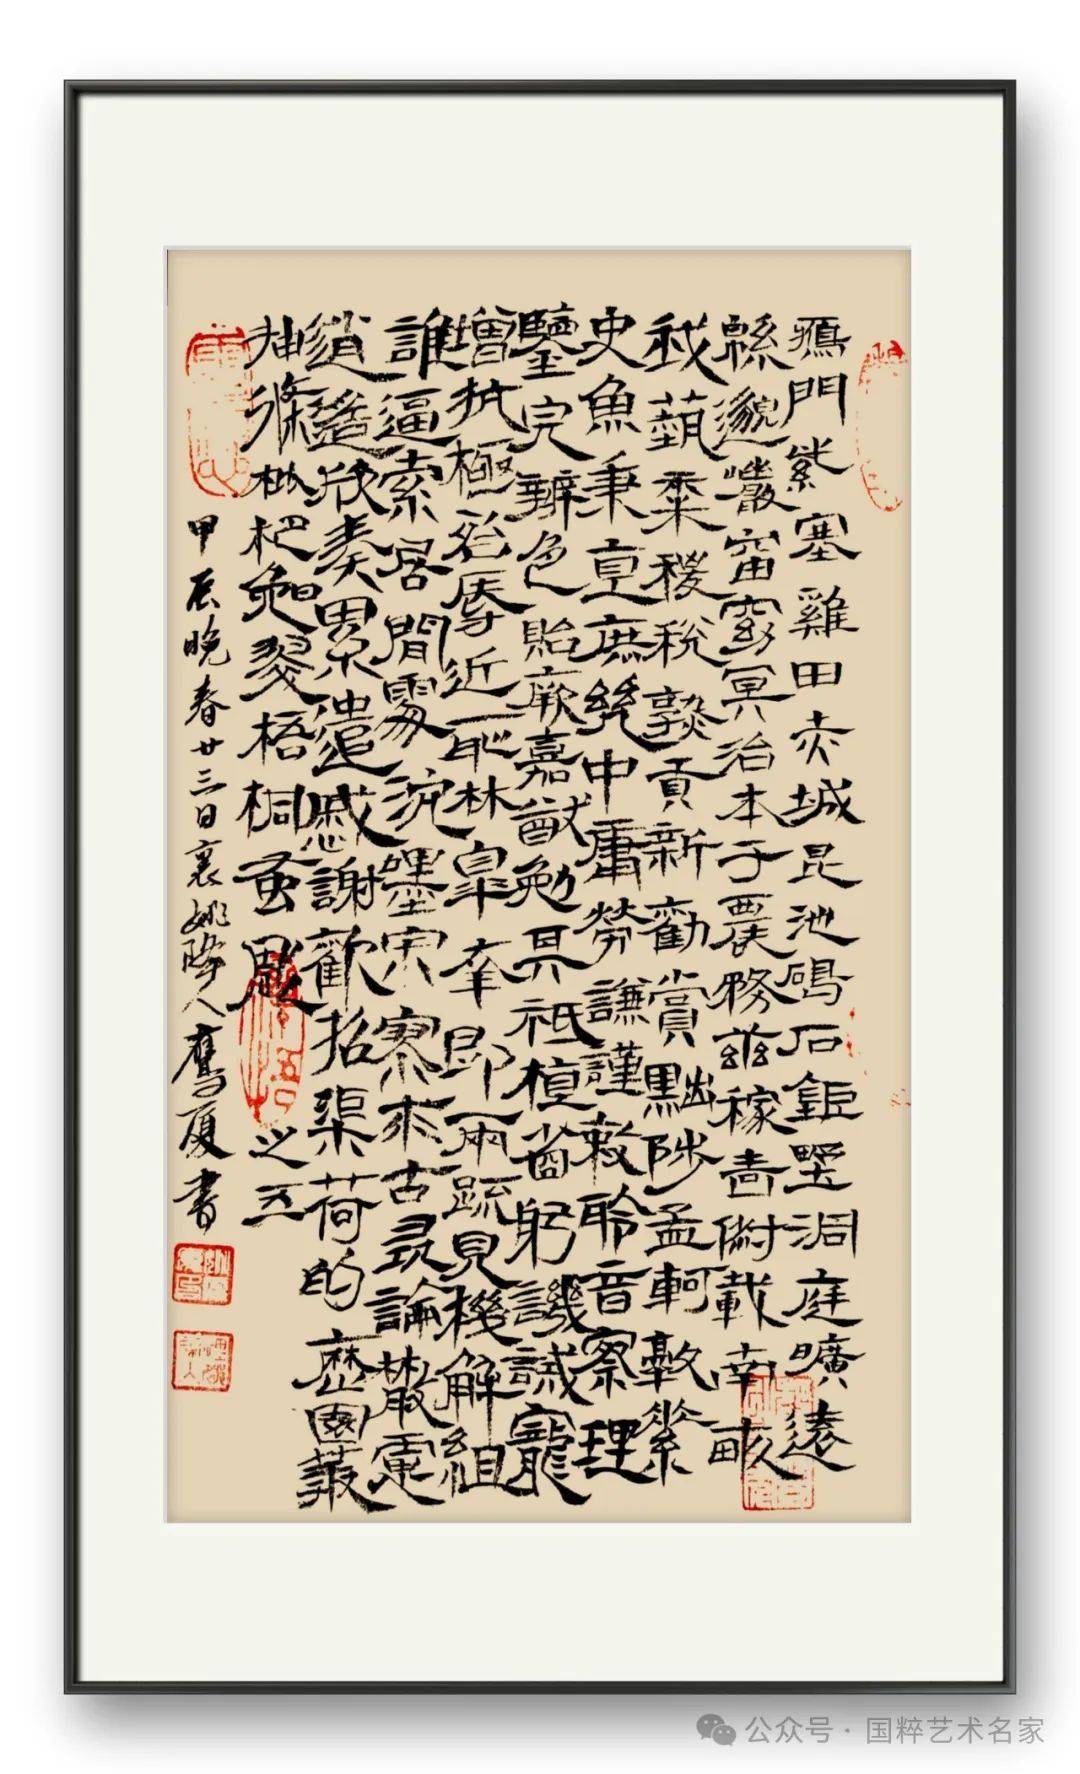 鴈門紫塞雞田赤城昆池碣石鉅野洞庭曠遠
緜邈巖岫杳冥治本于農務茲稼穡俶載南畝
我藝黍稷稅熟貢新勸賞黜陟孟軻敦素
史魚秉直庶幾中庸勞謙謹敕聆音察理
鑒皃辨色貽厥嘉猷勉其祗植省躬譏誡寵
增抗極殆辱近恥林皋幸即兩疏見機解組
誰逼索居閒處沉默寂寥求古尋論散慮
逍遙欣奏累遣慼謝歡招渠荷的歷園莽
抽條枇杷晚翠梧桐蚤凋之五
甲辰晚春廿三日襄姚人鷹厦書
公众号·国粹艺术名家